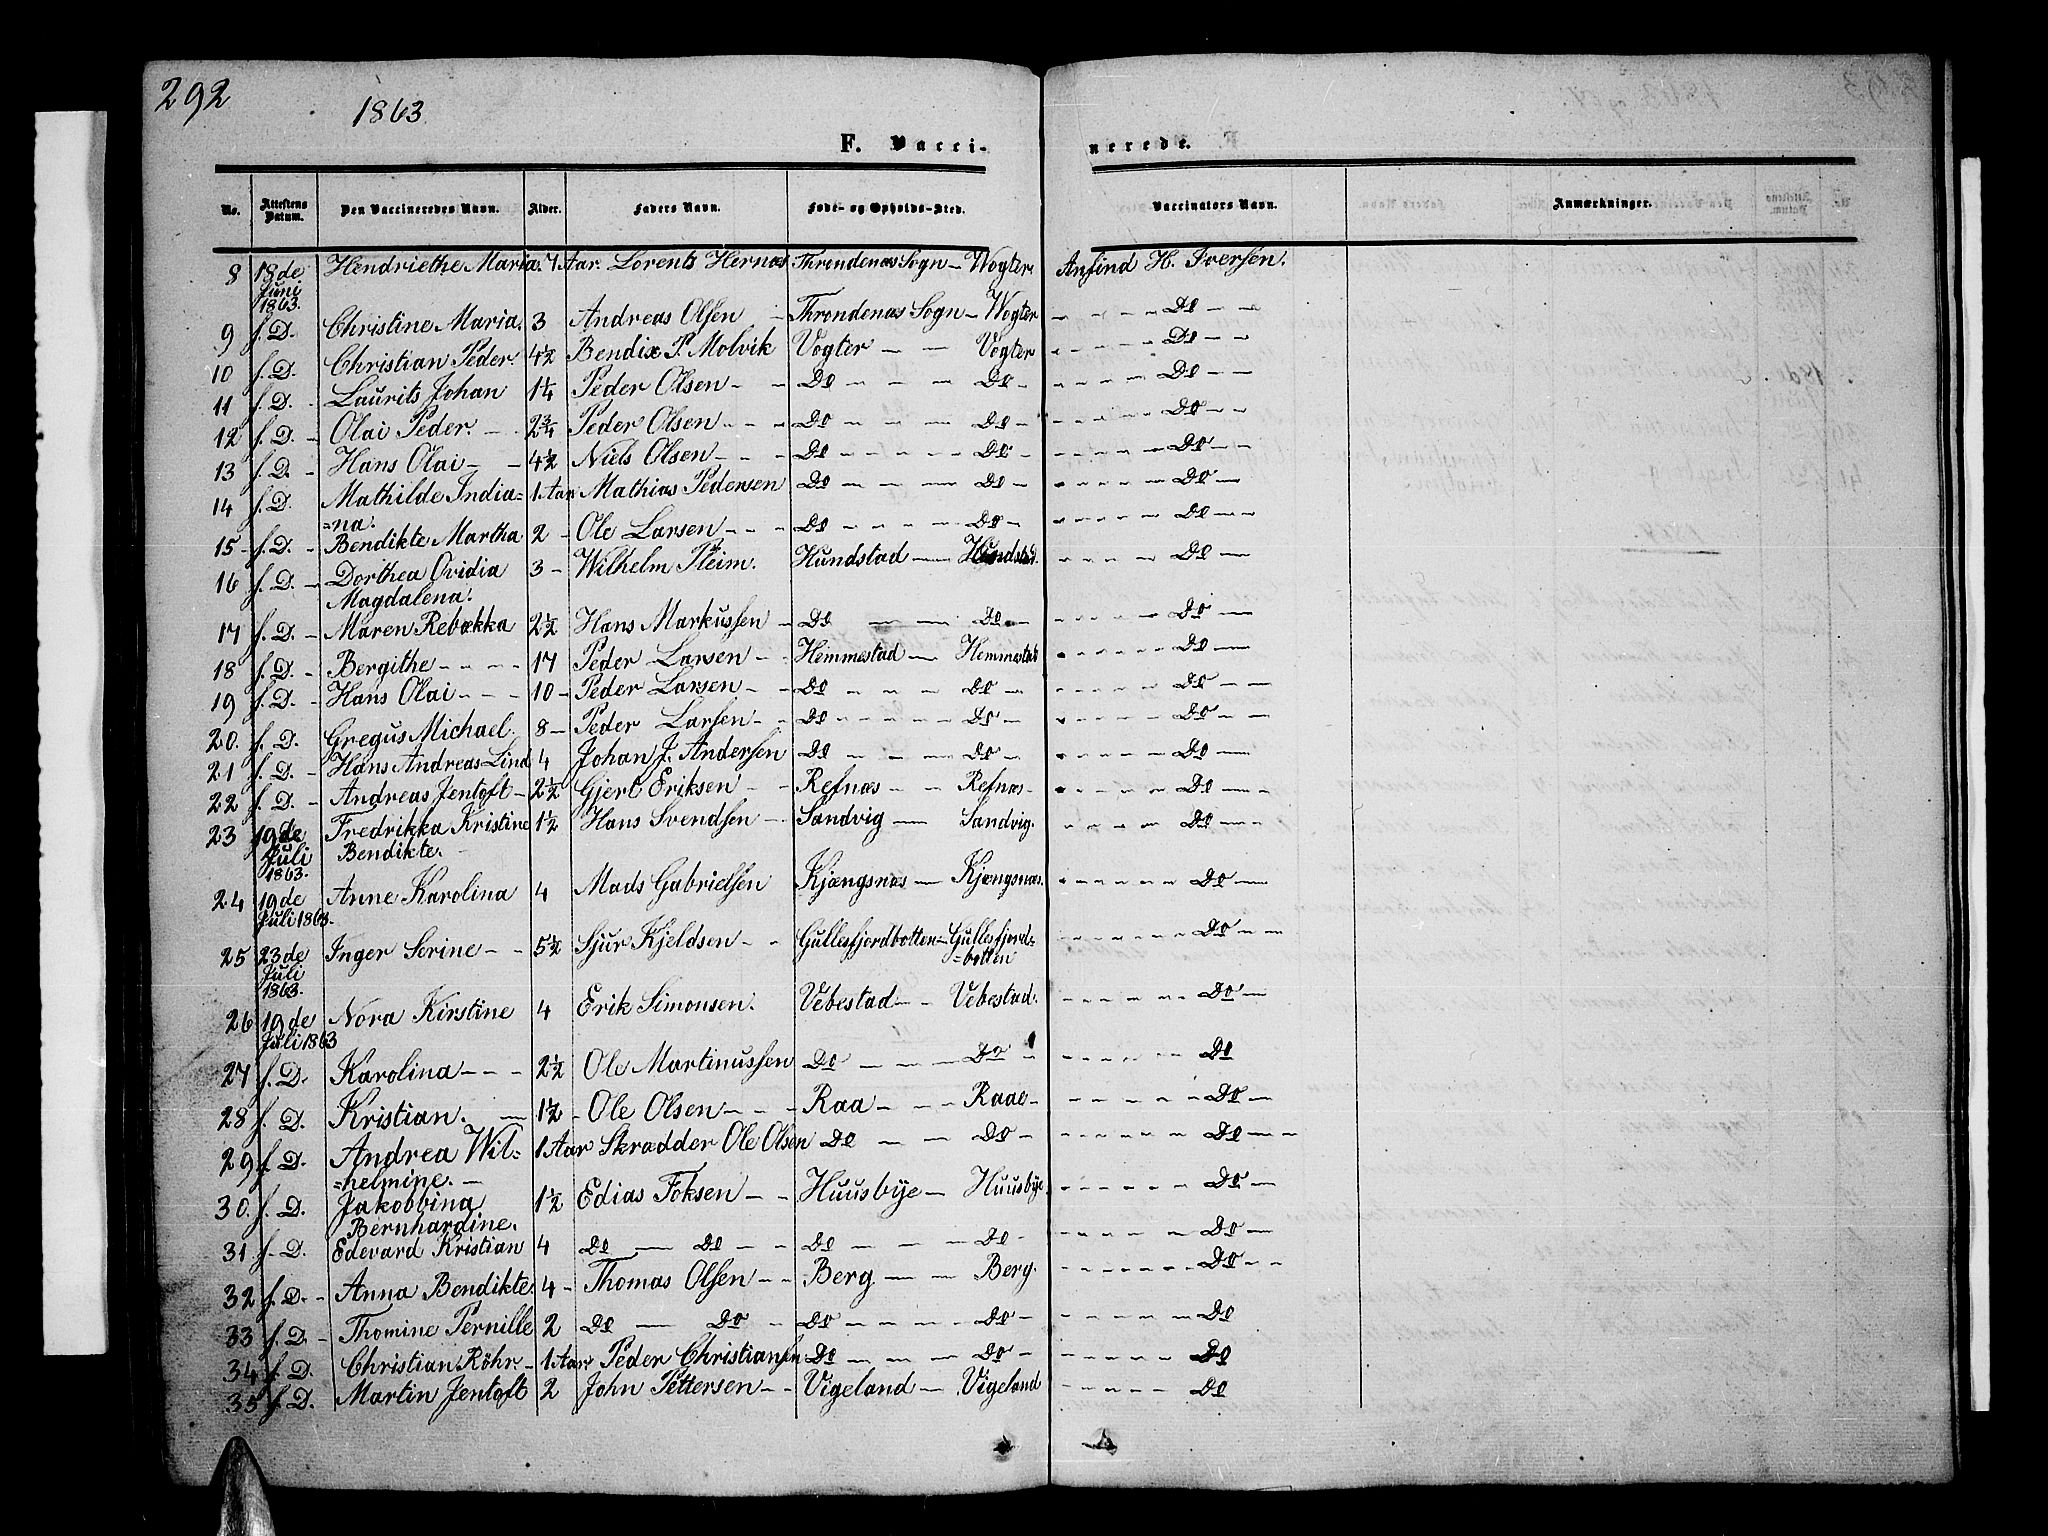 292
1863
F. Vacci-
nerede.
No. Attestens Datum. Den Vaccineredes Navn. Alder. Faders Navn. Føde- og Opholds-Sted. Vaccinators Navn. Anmærkninger.
8 18de Juni 1863. Hendriethe Maria. Aar. Lorents Hernæs Throndenæs Sogn - Vogter. Anfind H. Iversen.
9 f. D. Christine Maria. 3 Andreas Olsen - Throndenæs Sogn - Vogter - - - - - Do - -
10 f. D. Christian Peder. 4½ Bendix P. Molvik Vogter - - Vogter - - - - - Do - -
11 f. D. - Laurits Johan 1¼ Peder Olsen - - Do - - - Do - - - - - - Do - -
12 f. D. - Olai Peder. - 2¾ Peder Olsen - - - Do - - - Do - - - - - - Do - -
13 f. D. - Hans Olai - - 4½ Niels Olsen - - - Do - - - - Do - - - - - - Do - -
14 f. D. Mathilde India= =na. 1 Aar Mathias Pedersen Do - - - - Do - - - - - - Do - -
15 - f. D. - Bendikte Martha 2 - Ole Larsen - - - Do - - - - Do - - - - - - Do - -
16 f. D. - Dorthea Ovidia Magdalena. 3 - Wilhelm Pleim. Hundstad - Hundstad. - - - - - Do -
17 f. D. - Maren Rebækka 2½ Hans Markussen - Do - - - Do - - - - - - Do - -
18 f. D. - Bergithe - - - - 17 Peder Larsen - - Hemmestad - Hemmestad - - - - - Do - -
19 f. D. - Hans Olai - - - 10 - Peder Larsen - - Do - - - - Do - - - - - - Do - - -
20. f. D. Gregus Michael. 8 - Peder Larsen - - Do - - - - - Do - - - - - - Do - -
21 f. D. - Hans Andreas Lind 4 Johan J. Andersen Do - - - - Do - - - - - - Do -
22 f. D. - Andreas Jentoft - 2½ Gjert Eriksen - - Refnæs - - Refnæs - - - - - - Do - -
23 19de Juli 1863. Fredrikka Kristine Bendikte. - 1½ Hans Svendsen - - Sandvig - Sandvig. - - - - - Do - -
24 19de Juli 1863. Anne Karolina 4 Mads Gabrielsen Kjængsnæs - Kjængsnæs. - - - - - Do -
25 23de Juli 1863. Inger Serine - - 5½ Sjur Kjeldsen - - Gullesfjordbotten - Gullesfjord= =botten - - - - - - Do - -
26 19de Juli 1863 Nora Kirstine 4 Erik Simonsen. Vebestad - - Vebestad. - - - - - - Do -
27 f. D. Karolina - - - 2½ Ole Martinussen Do - - - Do - - - - - - Do
28 f. D. Kristian. - 1½ - Ole Olsen - - - Raa - - - Raae - - - - - - - Do -
29 f. D. Andrea Wil= =helmine. - 1 Aar Skrædder Ole Olsen Do - - - Do - - - - - - - Do - - -
30. f. D. Jakobbina Bernhardine. 1½ Edias Foksen - - Huusbye - Huusbye - - - - - - Do - -
31 f. D. Edevard Kristian 4 Do - Do - - Do - - - Do - - - - - - - Do -
32 f. D. - Anna Bendikte. 4 - Thomas Olsen - - Berg - - Berg. - - - - - - Do - -
33 f. D. - Thomine Pernille 2 Do - Do - Do - - - - Do - - - - - - - Do
34 f. D. Christian Röhr - 1 Aar Peder Christiansen Do - - - Do - - - - - - Do
35 f. D. Martin Jentoft 2 John Pettersen - - Vigeland - Vigeland - - - - - Do